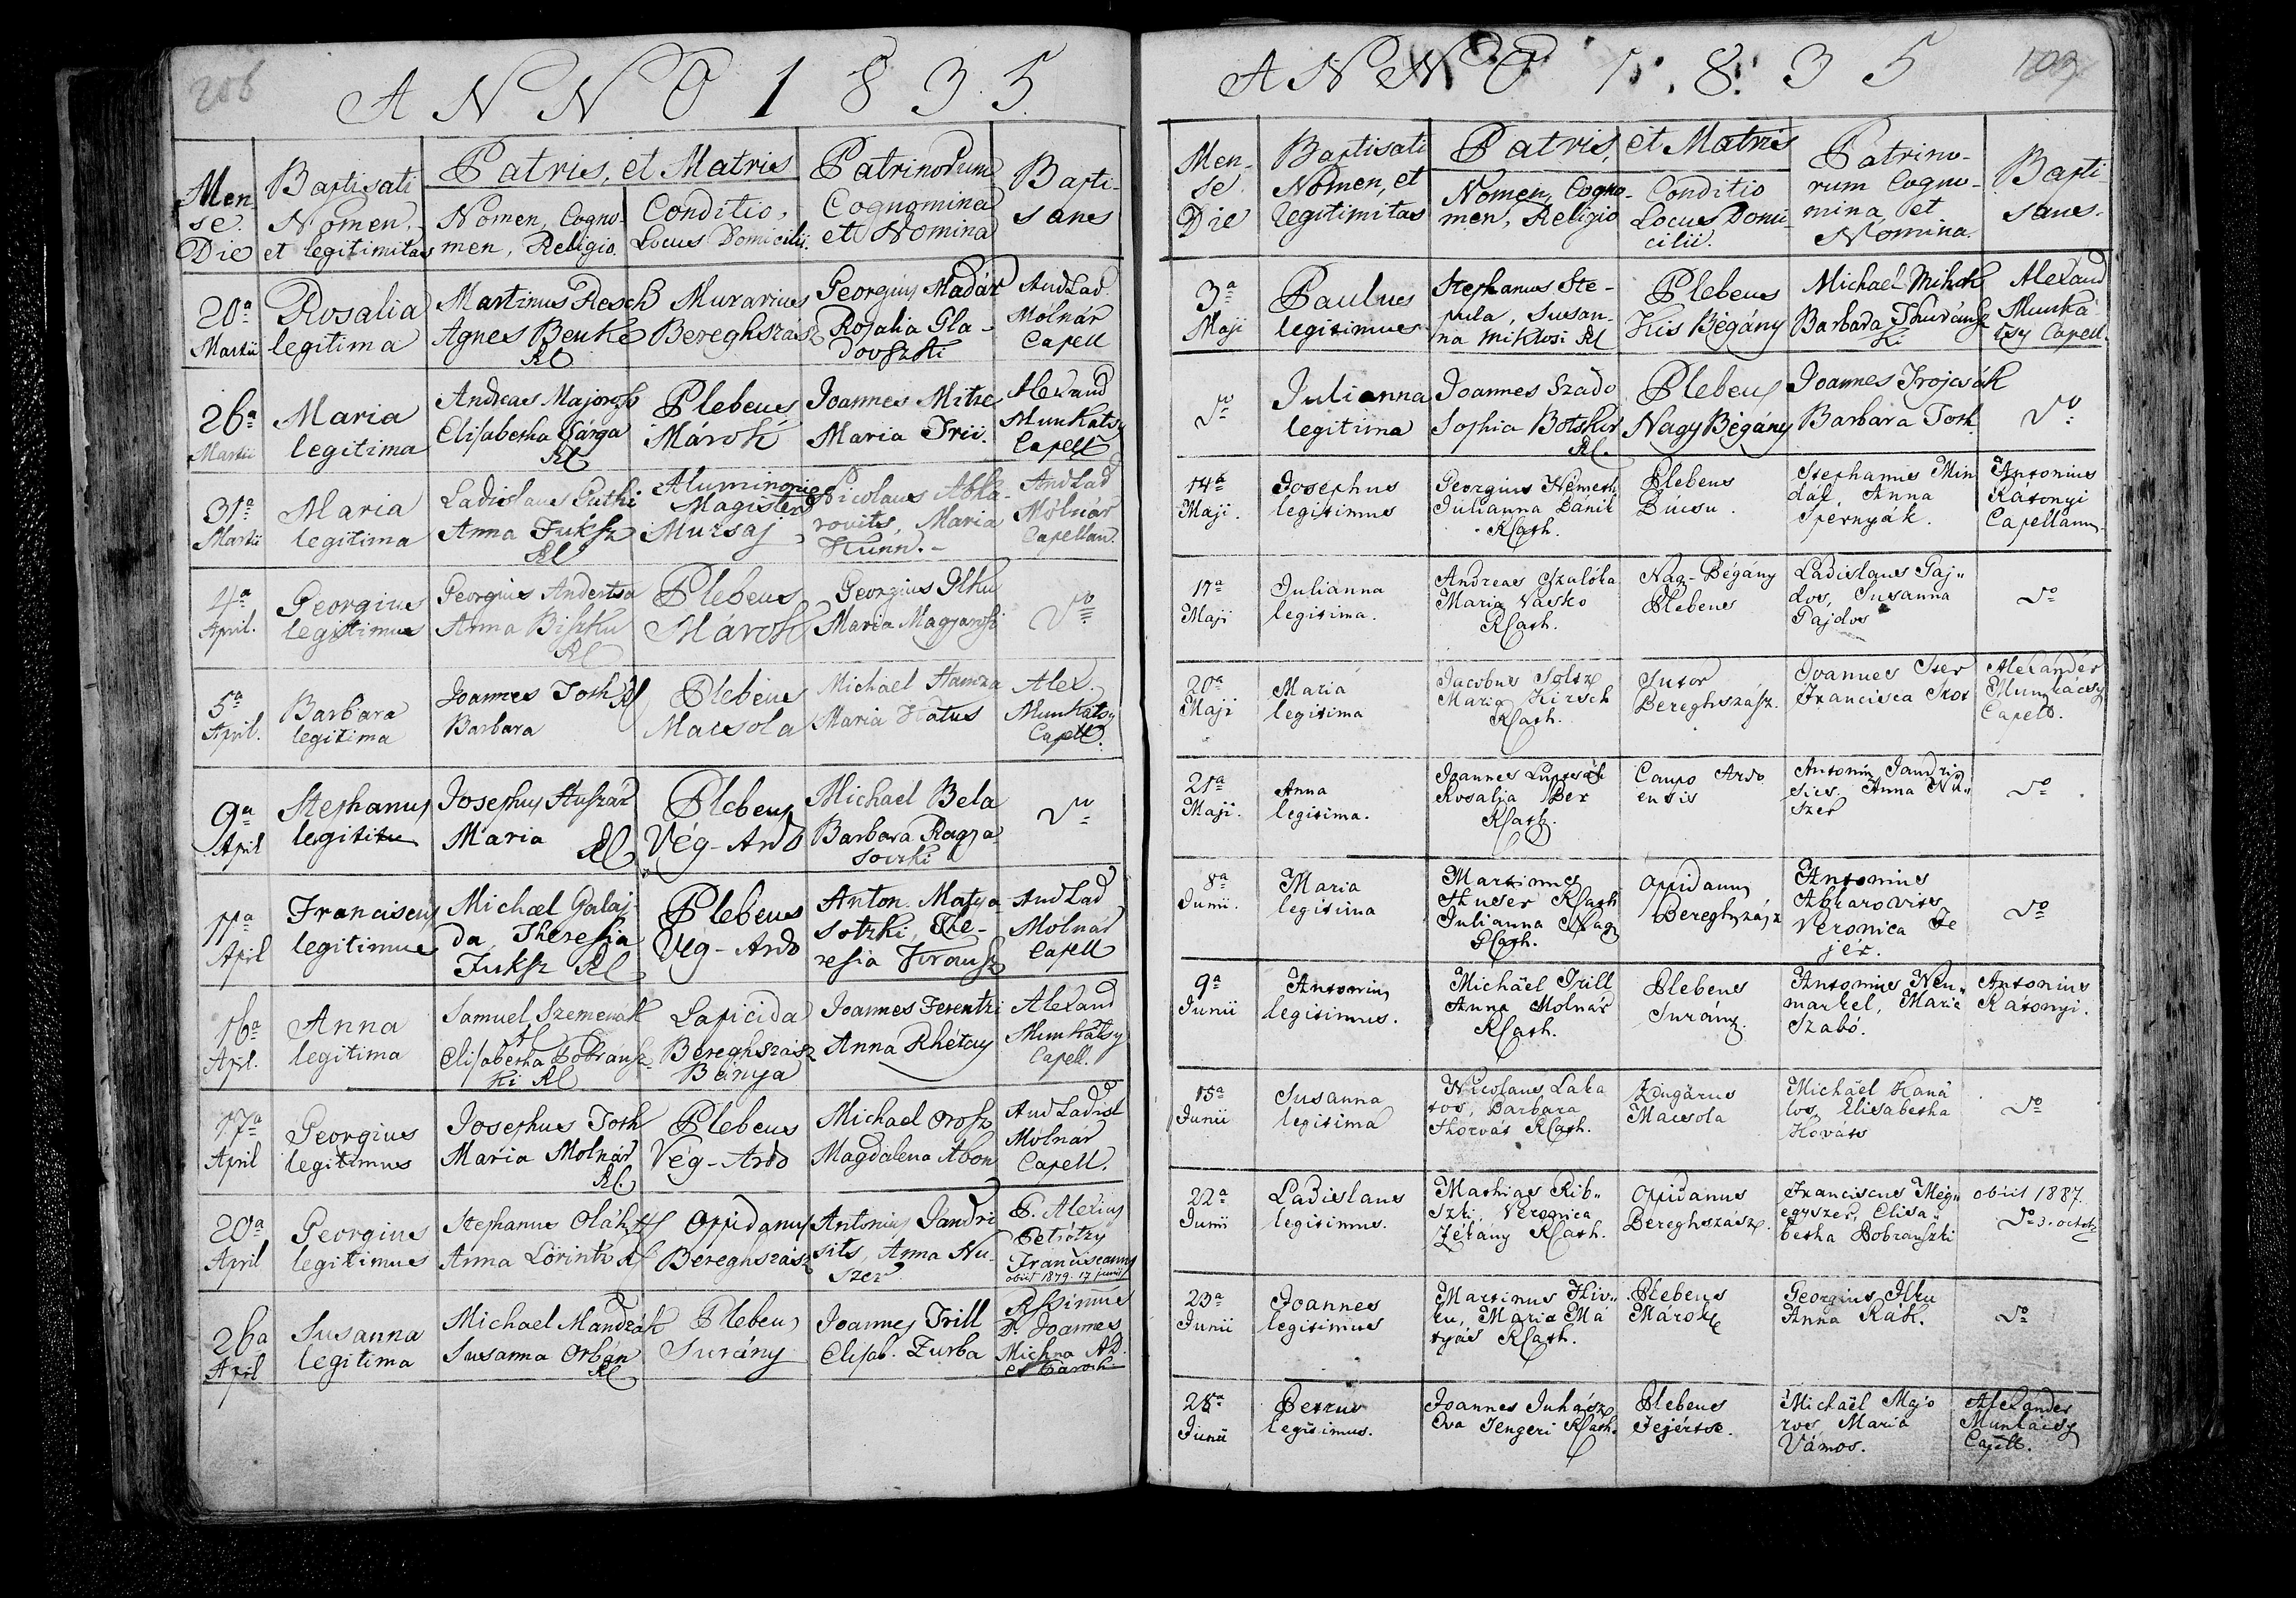 206
ANNO 1835.
Men-
se.
Die
Baptisati
Nomen,
et legitimitas
Patris, et Matris
Nomen, Cogno-
men, Religio.
Conditio,
Locus Domicilii.
Patrinorum
Cognomina
et Nomina
Bapti-
sans
20a
Martii
Rosalia
legitima
Martinus Resch
Agnes Benke
RC
Murarius
Bereghszász
Georgius Madár
Rosalia Gla-
dovszki
And Lad
Mólnár
Capell
26a
Martii
Maria
legitima
Andreas Majoros
Elisabetha Sárga
RC
Plebeus
Márok
Joannes Mitze
Maria Trii.
Alexand
Munkatsy
Capell
31a
Martii
Maria
legitima
Ladislaus Guthi
Anna Fuksz
RC
Aluminonie
Magister
Muzsaj
Nicolaus Abla-
rovits, Maria
Kunn.-
And Lad
Mólnár
Capellan.
4a
April.
Georgius
legitimus
Georgius Andertsa
Anna Biszku
RC
Plebeus
Márok
Georgius Ilku
Maria Magyarosi
Do
5a
April.
Barbara
legitima
Joannes Toth RC
Barbara
Plebeus
Macsola
Michael Hamza
Maria Hatus
Alex.
Munkatsy
Capell.
9a
April
Stephanus
legititu
Josephus Huszár
Maria RC
Plebeus
Vég-Ardó
Michael Bela
Barbara Ragya-
sovzki
Do
11a
April
Franciscus
legitimus
Michael Galaj-
da, Theresia
Fuksz RC
Plebeus
Vég-Ardó
Anton. Matya-
sotzki, The-
resia Krausz
And Lad
Mólnár
Capell
16a
April.
Anna
legitima
Samuel Szemenák
Elisabetha Dobránsz-
ki RC
Lapicida
Bereghszász
Bánya
Joannes Ferentzi
Anna Rhétey
Alexand
Munkatsy
Capell.
17a
April
Georgius
legitimus
Josephus Toth
Maria Molnár
RC.
Plebeus
Vég-Ardó
Michael Orosz
Magdalena Abon
And Ladisl
Mólnár
Capell.
20a
April
Georgius
legitimus
Stephanus Oláh
Anna Lörintz RC
Oppidanus
Bereghszász
Antonius Jandri
sits, Anna Nu-
szer
P. Alexius
Petrótzy
Franciscanus
obiit 1879. 17 junii
26a
April
Susanna
legitima
Michael Mandzák
Susanna Orbán
RC
Plebeus
Surány
Joannes Trill
Elisab. Zurba
Rssimus
D. Joannes
Michna AD.
et Paroch
ANNO 1835
Men-
se.
Die
Baptisati
Nomen, et
legitimitas
Patris, et Matris
Nomen, Cogno-
men, Religio
Conditio
Locus Domi-
cilii.
Patrino-
rum Cogno-
mina, et
Nomina.
Bapti-
sans.
3a
Maji
Paulus
legitimus
Stephanus Ste-
fula, Susan-
na Miklosi RC
Plebeus
Kis Bégány
Michael Mihok
Barbara Thuránsz
ki
Alexand
Munká
tsy Capell.
Do
Julianna
legitima
Joannes Szabo
Sophia Botskor
RC.
Plebeus
Nagy Bégány
Joannes Trojcsák
Barbara Toth
Do
14a
Maji.
Josephus
legitimus
Georgius Németh
Julianna Dánik
RCath.
Plebeus
Búcsu.
Stephanus Min
dák, Anna
Spérnyák.
Antonius
Rátonyi
Capellanus.
17a
Maji
Julianna
legitima.
Andreas Czulóka
Maria Vasko
RCath.
Nagy-Bégány
Plebeus
Ladislaus Gaj„
dos, Susanna
Pajdos
Do
20a
Maji
Maria
legitima
Jacobus Soltz
Maria Kirsch
RCath.
Sutor
Bereghszász.
Joannes Ster
Francisca Stor
Alexandér
Munkácsy
Capell.
21a
Maji.
Anna
legitima.
Joannes Luptsák
Rosalia Ber
RCath.
Caupo Ardo
ensis
Antonius Jandri
sics. Anna Nu„
szer
Do
8a
Junii.
Maria
legitima
Martinus
Stuser RCath
Julianna Nagy
RCath.
Oppidanus
Bereghszász
Antonius
Ablarovits
Veronica Fe
jér.
Do
9a
Junii
Antonius
legitimus.
Michäel Trill
Anna Molnár
RCath.
Plebeus
Surány.
Antonius Neu„
markel, Maria
Szabó.
Antonius
Rátonyi.
15a
Junii
Susanna
legitima
Nicolaus Laka
tos, Barbara
Horvát RCath.
Zingarus
Macsola
Michäel Kaná
los, Elisabetha
Kováts
Do
22a
Junii
Ladislaus
legitimus.
Mathias Rib„
szki, Veronica
Zétány RCath.
Oppidanus
Bereghszász.
Franciscus Még„
egyszer, Elisa„
betha Dobranszki
obiit 1887.
Do 3. octob
23a
Junii
Joannes
legitimus
Martinus Hiv„
ku, Maria Má
tyás RCath.
Plebeus
Márok
Georgius Ilku
Anna Rák.
Do
28a
Junii
Petrus
legitimus.
Joannes Juhász
Eva Tengeri RCath.
Plebeus
Fejértse.
Michäel Majo
ros, Maria
Vámos.
Alexander
Munkácsy
Capell.